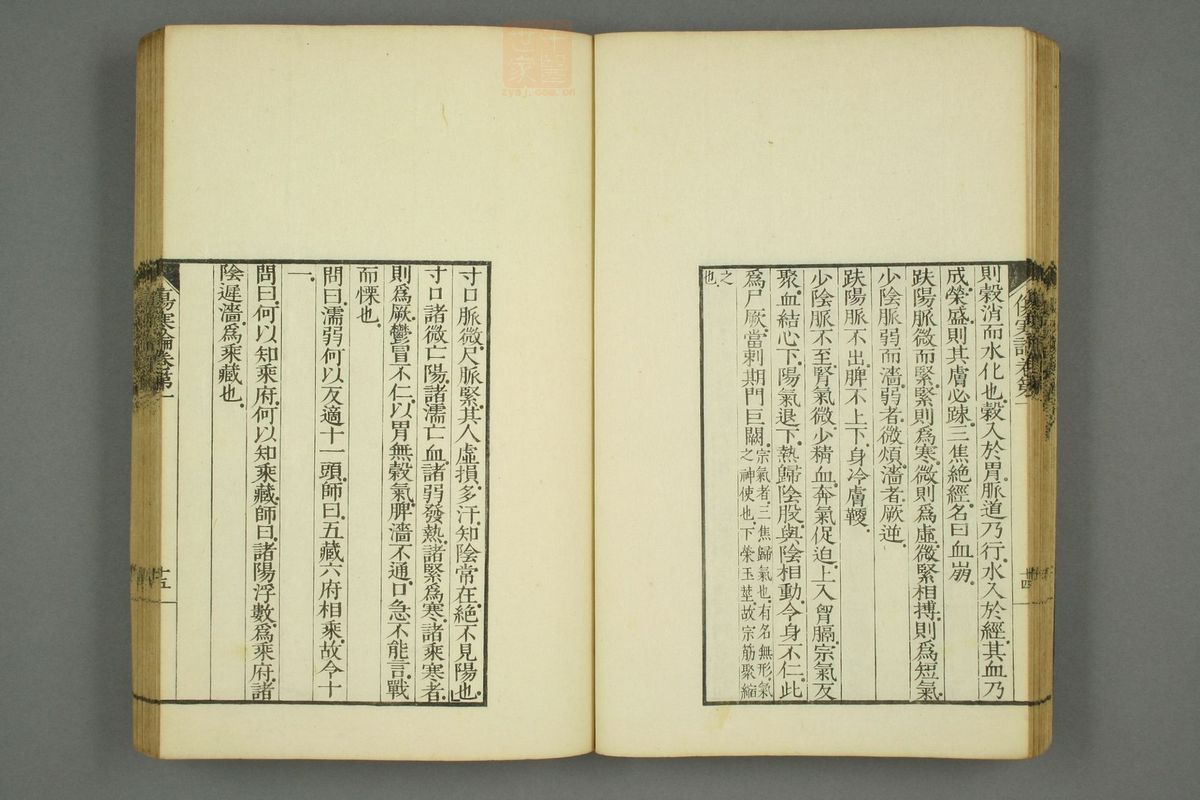 則穀消而水化也。穀入於胃。脈道乃行。水入於經。其血乃
成。榮盛。則其膚必踈。三焦絶經。名曰血崩。
趺陽脈微而緊。緊則爲寒。微則爲虛。微緊相搏。則爲短氣。
少陰脈弱而濇。弱者微煩。濇者厥逆。
趺陽脈不出。脾不上下。身冷膚鞕。
少陰脈不至。腎氣微。少精血。奔氣促迫。上入胷膈。宗氣反
聚。血結心下。陽氣退下。熱歸陰股。與陰相動。令身不仁。此
爲尸厥。當刺期門巨闕。宗氣者。三焦歸氣也。有名無形。氣
之神使也。下榮玉莖。故宗筋聚縮
之
也。
十四
寸口脈微。尺脈緊。其人虛損。多汗。知陰常在。絶不見陽也。
寸口諸微亡陽。諸濡亡血。諸弱發熱。諸緊爲寒。諸乘寒者。
則爲厥。鬱冒不仁。以胃無穀氣。脾濇不通。口急不能言。戰
而慄也。
問曰。濡弱何以反適十一頭。師曰。五藏六府相乘。故令十
一。
問曰。何以知乘府。何以知乘藏。師曰。諸陽浮數。爲乘府。諸
陰遲濇。爲乘藏也。
傷寒論卷第一
十五
zysj.com.cn